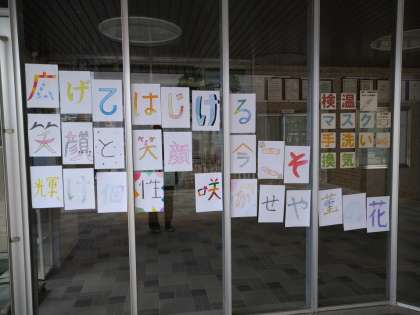 広げてはじける
笑顔と笑顔 今こそ
輝け個性 咲かせや菫の花
検温
マスク
手洗い
換気